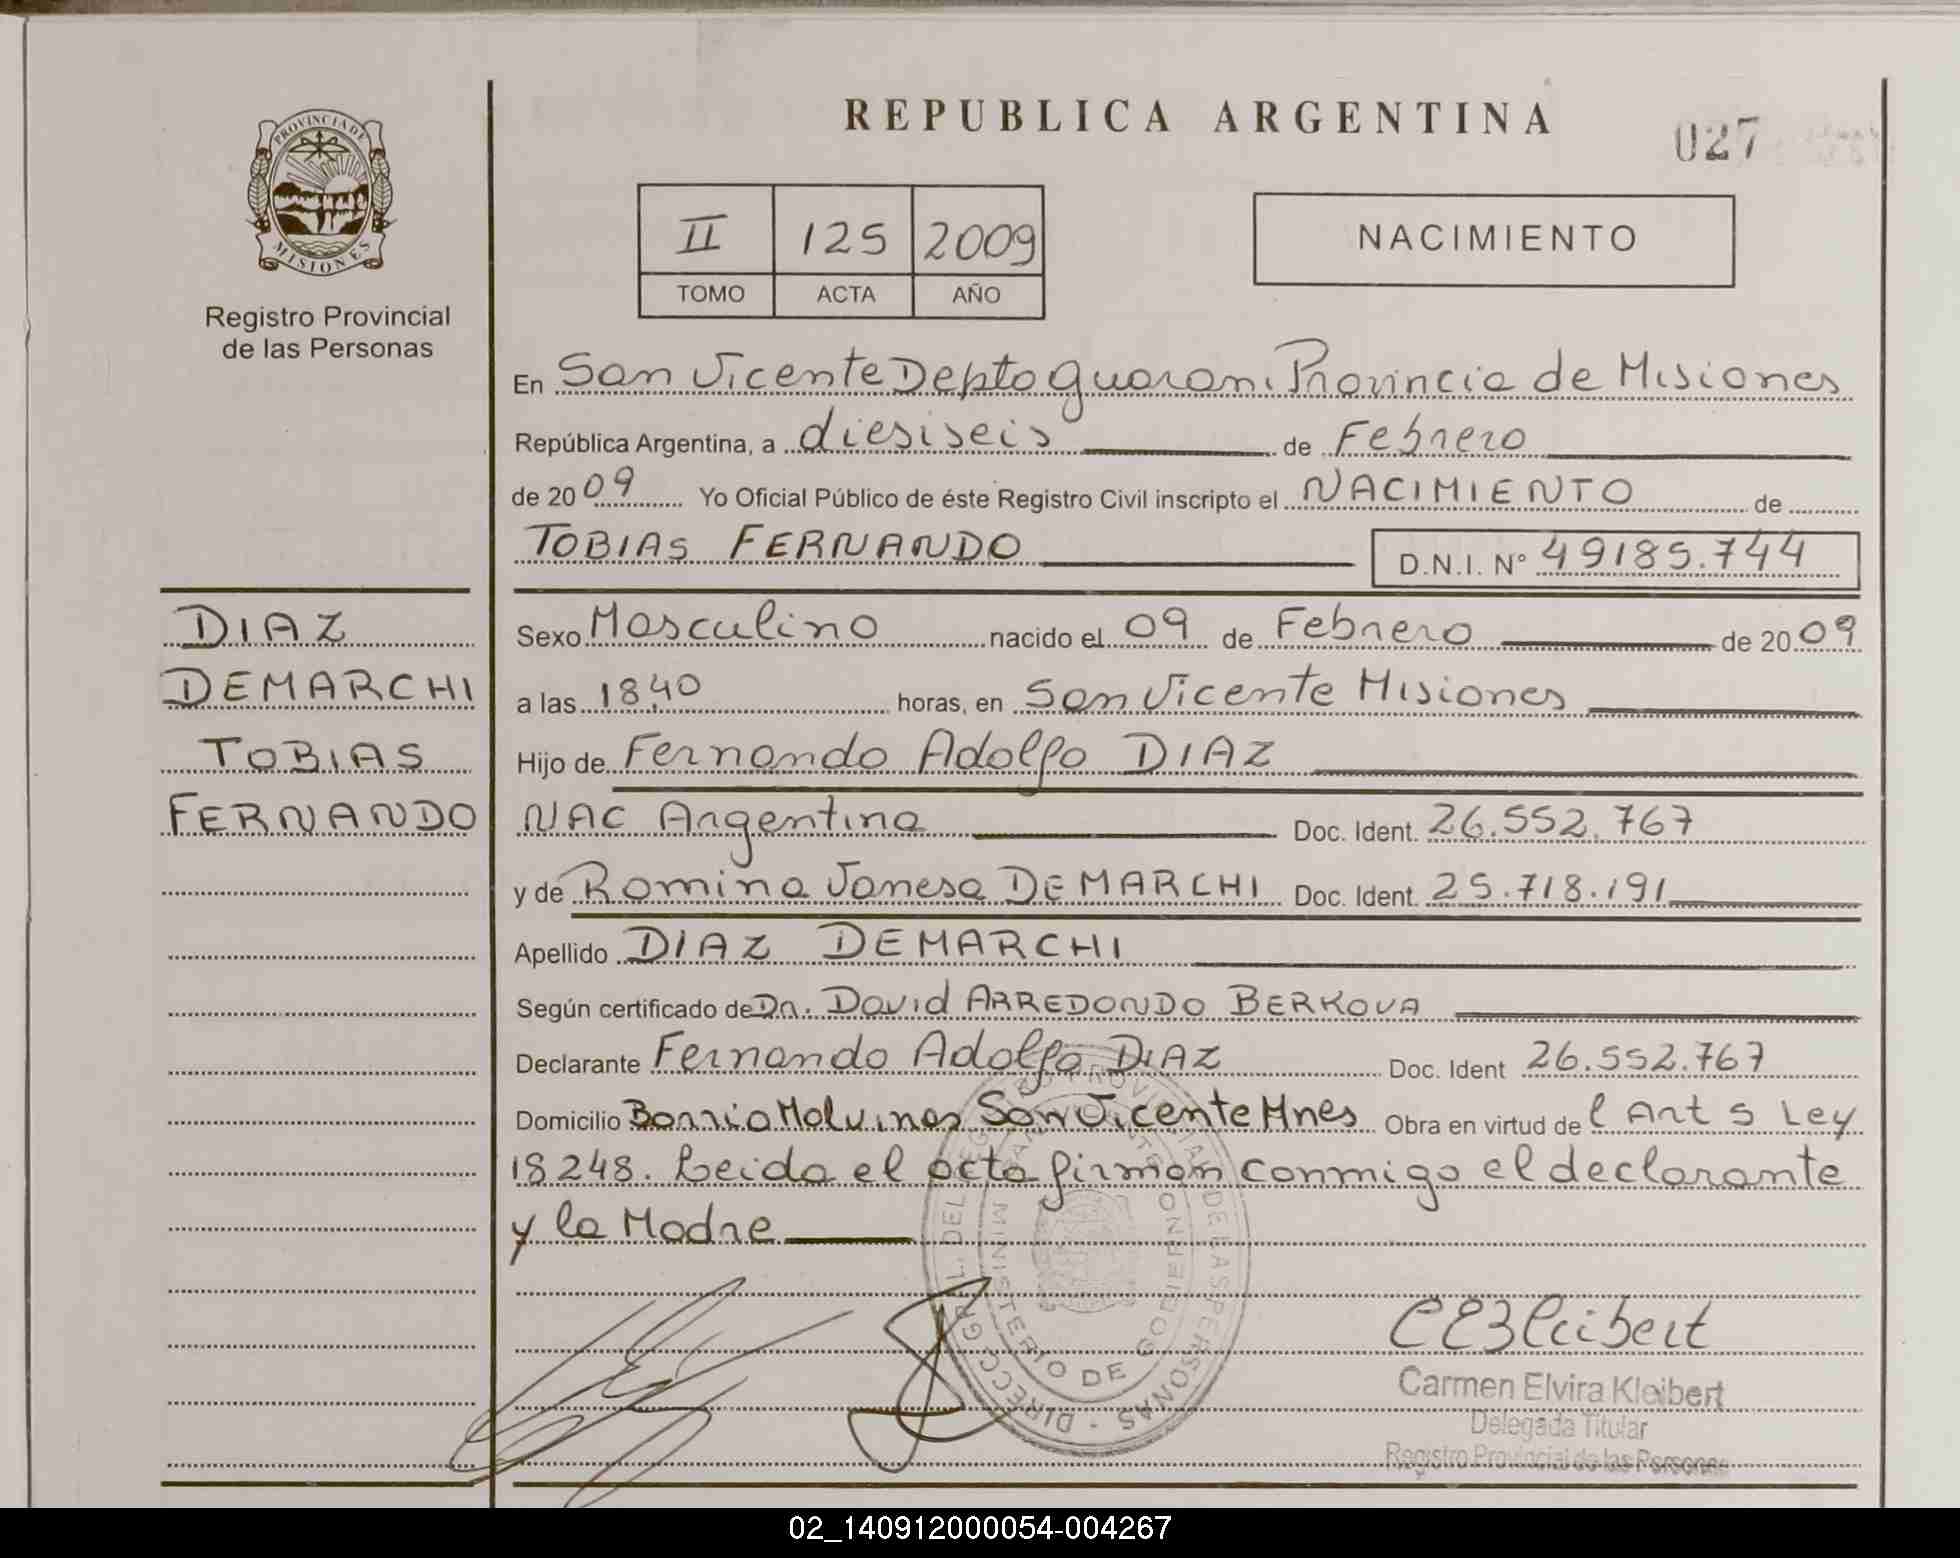 REPUBLICA ARGENTINA
027
PROVINCIA DE
MISIONES
Registro Provincial
de las Personas
II 125 2009
TOMO ACTA AÑO
NACIMIENTO
En San Vicente Depto Guarani Provincia de Misiones
República Argentina, a diesiseis de Febrero
de 2009 Yo Oficial Público de éste Registro Civil inscripto el NACIMIENTO de
TOBIAS FERNANDO D.N.I. Nº 49185.744
DIAZ
DEMARCHI
TOBIAS
FERNANDO
Sexo Masculino nacido el 09 de Febrero de 2009
a las 18,40 horas, en San Vicente Misiones
Hijo de Fernando Adolfo DIAZ
NAC Argentina Doc. Ident. 26.552.767
y de Romina Vanesa DEMARCHI Doc. Ident. 25.718.191
Apellido DIAZ DEMARCHI
Según certificado de Dr. David ARREDONDO BERKOVA
Declarante Fernando Adolfo DIAZ Doc. Ident 26.552.767
Domicilio Barrio Malvinas San Vicente Mnes Obra en virtud de l Art 5 Ley
18248. Leida el acta firman conmigo el declarante
y la Madre
DIRECC. GRAL. DEL REGISTRO PROVINCIAL DE LAS PERSONAS
MINISTERIO DE GOBIERNO
CEKleibert
Carmen Elvira Kleibert
Delegada Titular
Registro Provincial de las Personas
02_140912000054-004267